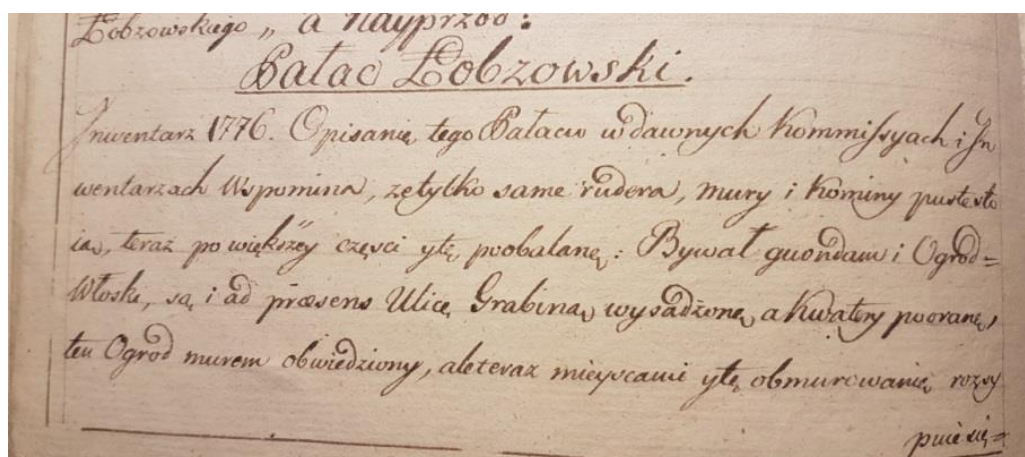 Łobzowskiego „ a Nayprzod :
Pałac Łobzowski.
Inwentarz 1776. Opisanie, tego Pałacu w dawnych Kommissyach i In
wentarzach Wspomina, że tylko same rudera, mury i Kominy puste sto
ią, teraz po większey częsci y te, poobalane,: Bywał quondam i Ogrod=
Włoski, są i ad præsens Ulice, Grabiną wysadzone, a Kwatery poorane,
ten Ogrod murem obwiedziony, ale teraz mieyscami y te, obmurowanie, rozsy
puie się=